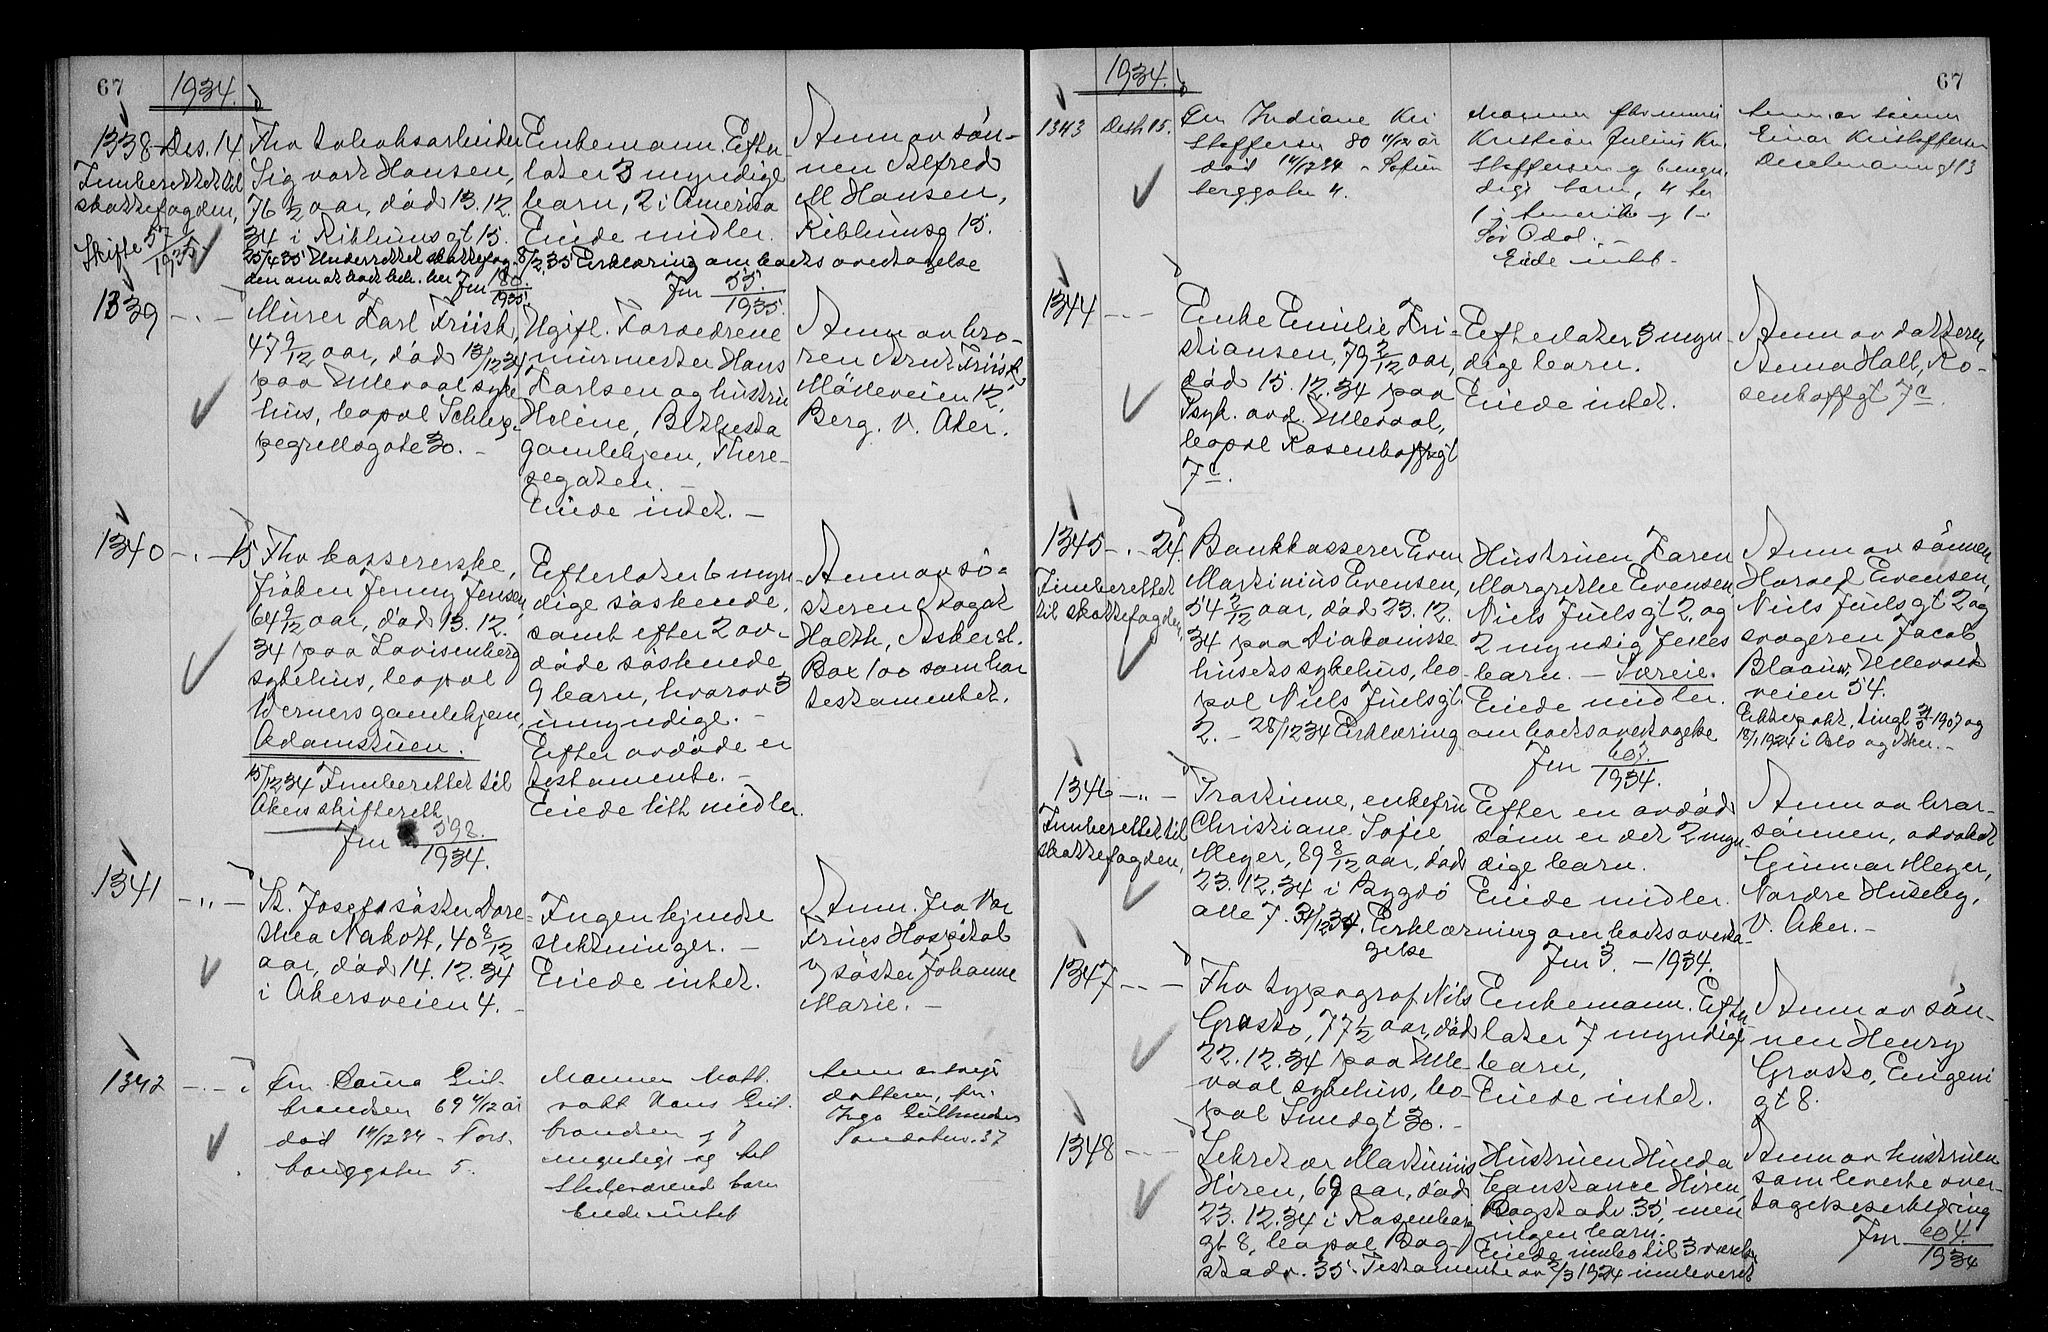 67
1934.
1338
Innberettet til
skattefogden,
Skifte 57/1935.
Des. 14
Fhv tolvaksarbeider
Sigvart Hansen,
76 1/2 aar, död 13.12.
34 i Kiblunsgt 15.
25/4 35 Underrettet skattefog-
den om at boet beh. her Jnr 180/1935
Enkemann. Efter-
later 3 myndige
barn, 2 i Amerika
Eiede midler.
8/2 35 Erklæring om boets overtagelse
Jnr 55/1935.
Anm av sön-
nen Alfred
M Hansen,
Kiblunsg 15.
1339
- . -
Murer Karl Friisk,
47 9/12 aar, död 13/12 34
paa Ullevaal syke-
hus, bopæl Schlep-
pegrellsgate 30. -
Ugift. Forældrene
murmester Hans
Karlsen og hustru
Helene, Bethesta
gamlehjem, There-
segaten. -
Eiede intet. -
Anm av bro-
ren Arnt Friisk
Mölleveien 12,
Berg. V. Aker.
1340
- . - 15
Fhv kassererske,
fröken Jenny Jensen,
64 9/12 aar, död 13.12.
34 paa Lovisenberg
sykehus, bopæl
Werners gamlehjem,
Adamstuen.
15/12 34 Innberettet til
Akers skifterett
Jnr 598./1934.
Efterlater 6 myn-
dige söskende,
samt efter 2 av-
döde söskende
9 barn, hvorav 3
umyndige. -
Efter avdöde er
testamente. -
Eiede litt midler.
Anm av sö-
steren Aagot
Holth, Asker st.
Box 100 som har
testamentet.
1341
- " -
St. Josefs söster Doro-
thea Nakott, 40 8/12
aar, död 14.12.34
i Akersveien 4. -
Ingen kjendte
slektninger. -
Eiede intet.
Anm. fra Vor
Frues Hospital
v söster Johanne
Marie. -
1342
- . -
Fru Laura Gul-
brandsen 69 4/12 år
död 14/12 34
gaten 5.
Mannen
Hans Gul-
brandsen og 7
myndige og til
stedeværende barn
Eiede intet
Anm av svi
datteren, fru
Inga Gulbrandsen
37
67
1934.
1343
Desb 15.
Fru Indiane Kri
stoffersen 80 11/12 år
död 14/12 34 - Sofien
berggaten 4.
Mannen
Kristian Julius Kri
stoffersen og 6 myn
dige barn, 4 her
1 i Amerika og 1 i
Sör Odal. -
Eiede intet -
Anm av sönnen
Einar Kristoffersen
13
1344
- . -
Enke Emilie Kri-
stiansen, 79 2/12 aar,
död 15.12.34 paa
Psyk. avd. Ullevaal,
bopæl Rosenhoffgt
7c.
Efterlater 3 myn-
dige barn.
Eiede intet.
Anm av datteren
Anna Hall, Ro-
senhoffgt 7c.
1345
Innberettet
til skattefogden,
- . - 24.
Bankkasserer Even
Martinius Evensen,
54 2/12 aar, död 23.12.
34 paa Diakonisse
husets sykehus, bo-
pæl Niels Juelsgt
2. - 28/12 34 Erklæring om boets overtagelse
Jnr 607./1934.
Hustruen Karen
Margrethe Evensen,
Niels Juelsgt 2, og
2 myndig felles
barn. - Særeie.
Eiede midler.
Anm av sönnen
Harald Evensen,
Niels Juelsgt 2 og
svogeren Jacob
Blaauw, Ullevaals
veien 54.
Ektepakt, tingl. 1907 og
18/1 1924 i Oslo og Aker. -
1346
Innberettet til
skattefogden,
- " -
Traktinne, enkefru
Christiane Sofie
Meyer, 89 8/12 aar, död
23.12.34 i Bygdö
alle 7. 31/12 34. Erklærning om boets overta-
gelse Jnr 3. - 1934.
Efter en avdöd
sönn er det 2 myn-
dige barn.
Eiede midler.
Anm av bror-
sönnen, advokat
Gunnar Meyer,
Nordre Huseby,
V. Aker. -
1347
- . -
Fhv typograf Nils
Grasto, 77 1/2 aar, död
22.12.34 paa Ulle-
vaal sykehus, bo-
pæl Smedgt 30. -
Enkemann. Efter-
later 7 myndige
barn,
Eiede intet.
Anm av sön-
nen Henry
Grasto, Eugeni
gt 8.
1348
- . -
Sekretær Martinius
Hoven, 69 aar, död
23.12.34 i Rosenborg
gt 8, bopæl Bog-
stadv. 35. Testamente av 2/3 1924 innleveret
Hustruen Hulda
Constance Hoven,
Bogstadv. 35, men
ingen barn.
Eiede innbo til 3
Anm av hustruen
som leverte over-
tagelseserklæring
Jnr 604./1934